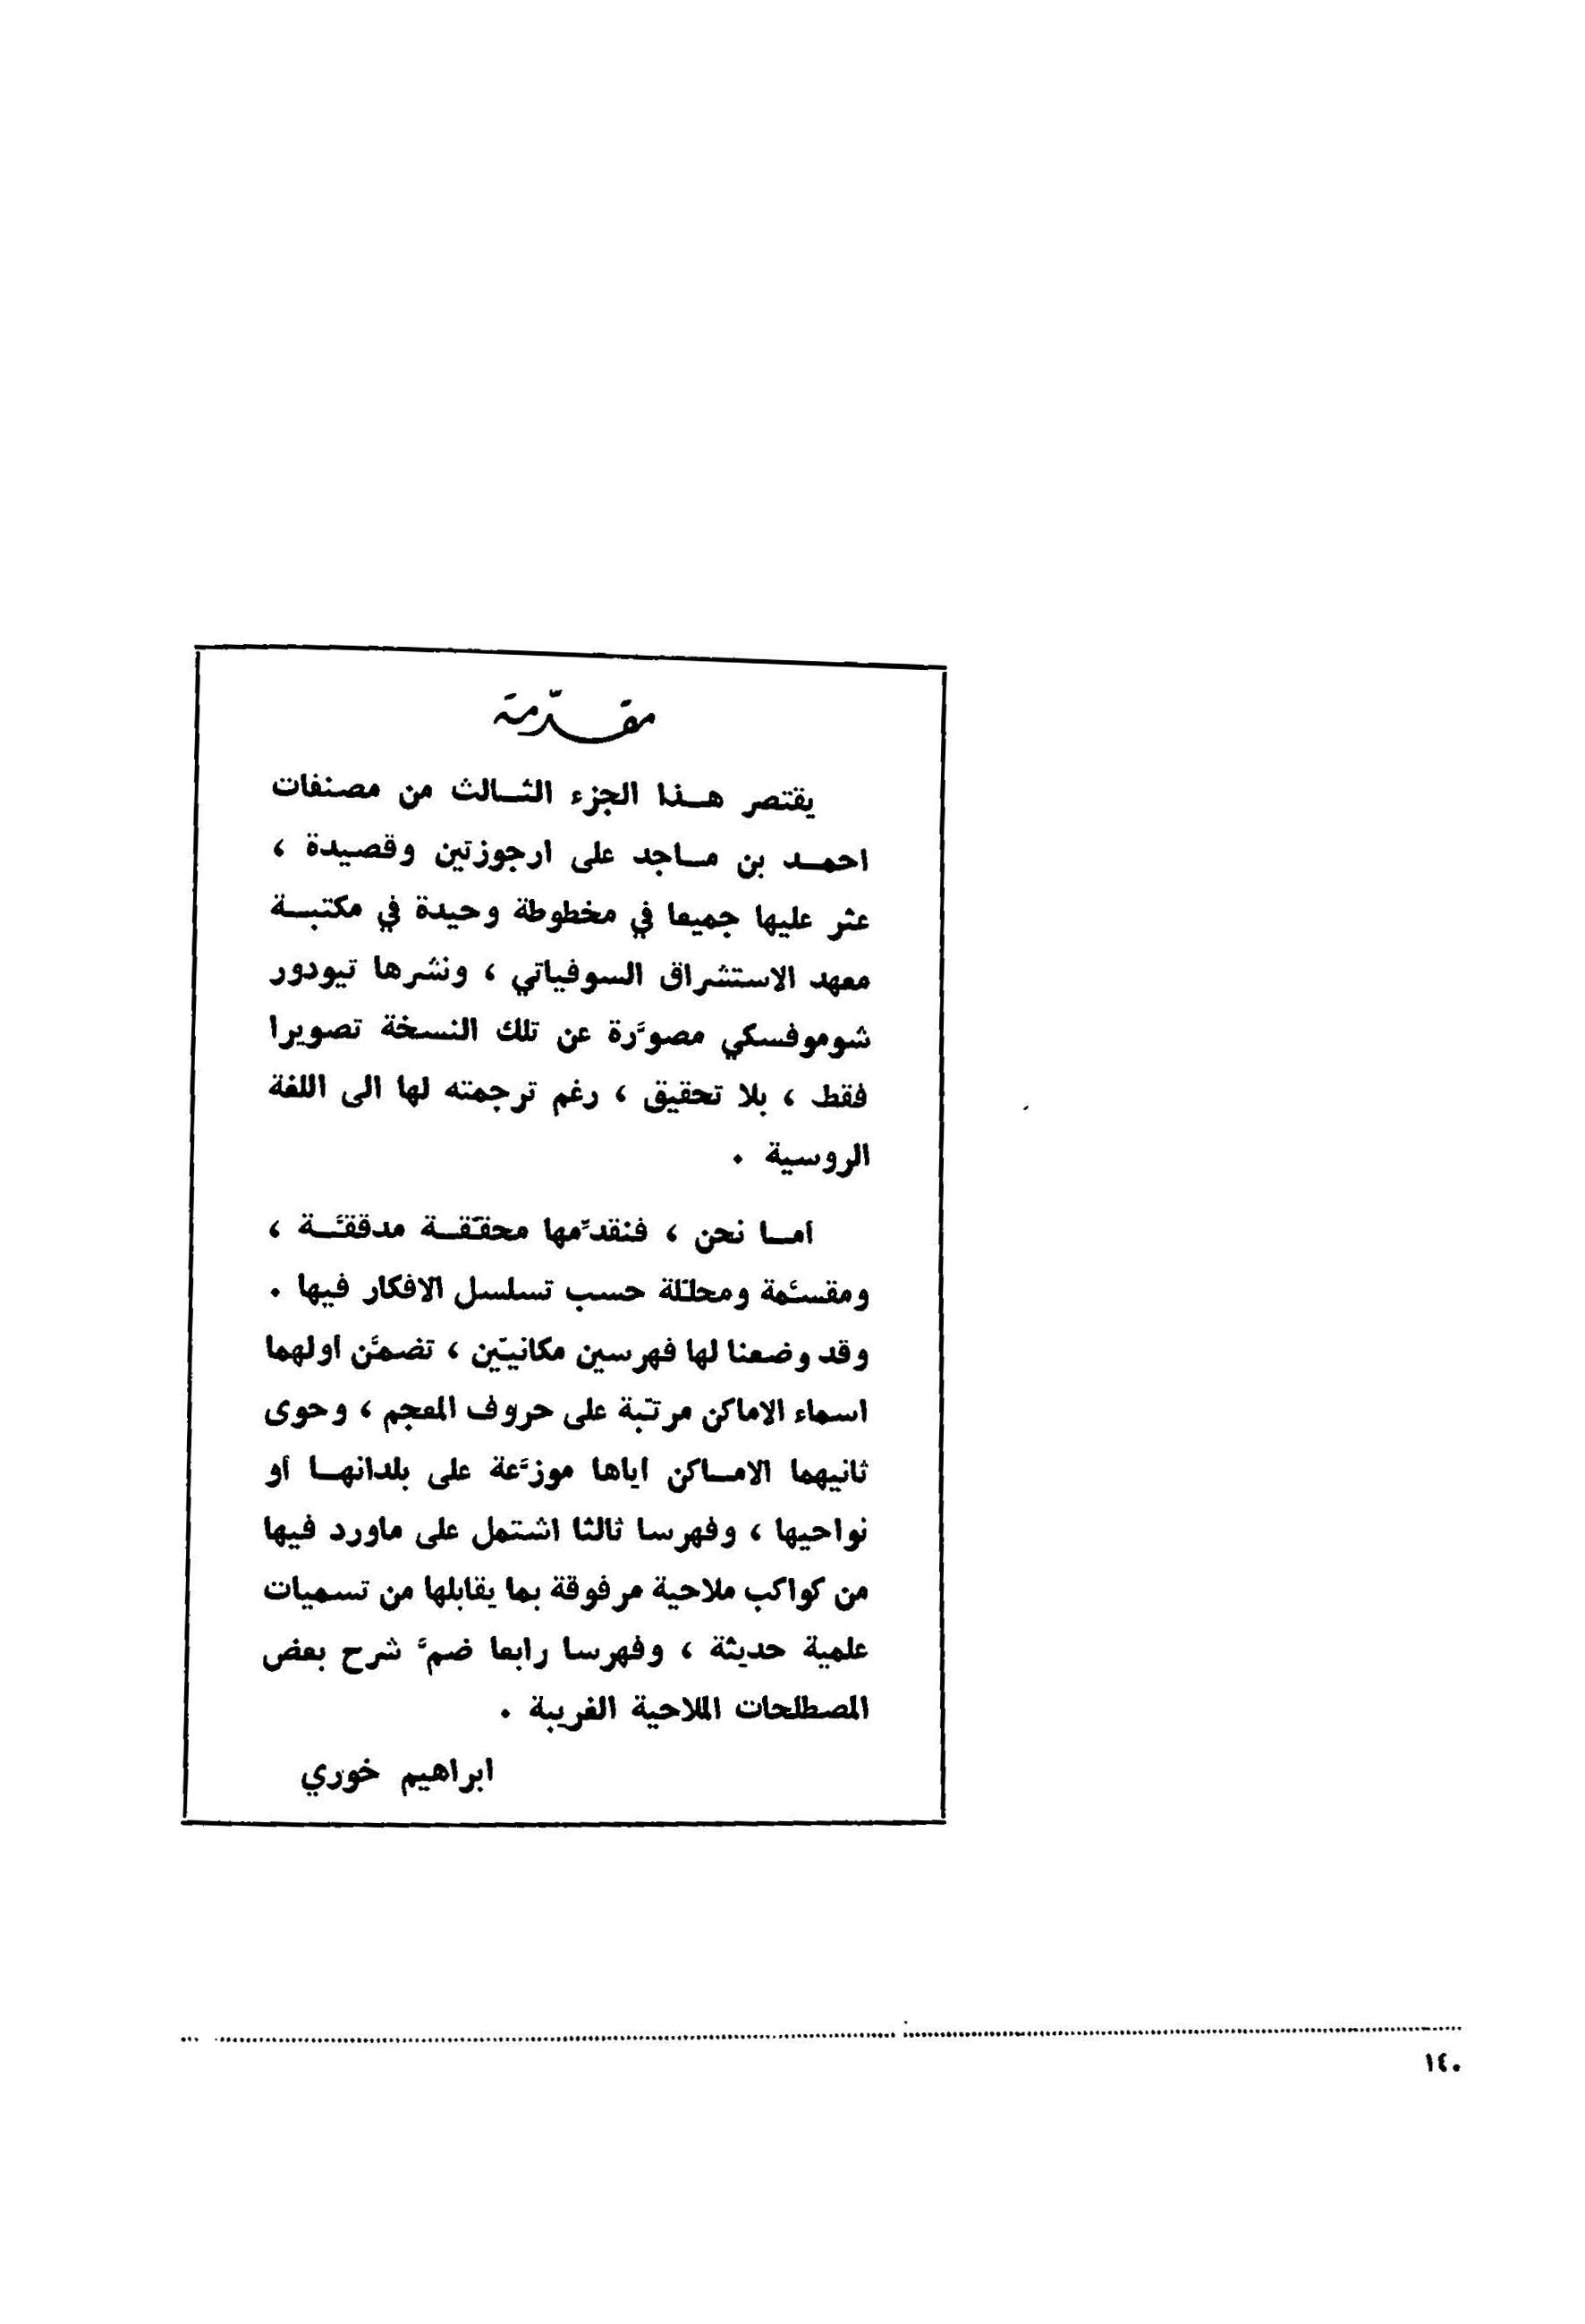 مقدّمة
يقتصر هذا الجزء الثالث من مصنفات
احمد بن ماجد على ارجوزتين وقصيدة ،
عثر عليها جميعا في مخطوطة وحيدة في مكتبة
معهد الاستشراق السوفياتي ، ونشرها تيودور
شوموفسكي مصوَّرة عن تلك النسخة تصويرا
فقط ، بلا تحقيق ، رغم ترجمته لها الى اللغة
الروسية .
أما نحن ، فنقدِّمها محقَّقة مدققَّة ،
ومقسَّمة ومحلَّلة حسب تسلسل الافكار فيها .
وقد وضعنا لها فهرسين مكانيّين ، تضمَّن اولهما
اسماء الاماكن مرتَّبة على حروف المعجم ، وحوى
ثانيهما الاماكن اياها موزَّعة على بلدانها أو
نواحيها ، وفهرسا ثالثا اشتمل على ماورد فيها
من كواكب ملاحية مرفوقة بما يقابلها من تسميات
علمية حديثة ، وفهرسا رابعا ضمَّ شرح بعض
المصطلحات الملاحية الغريبة .
ابراهيم خوري
١٤٠